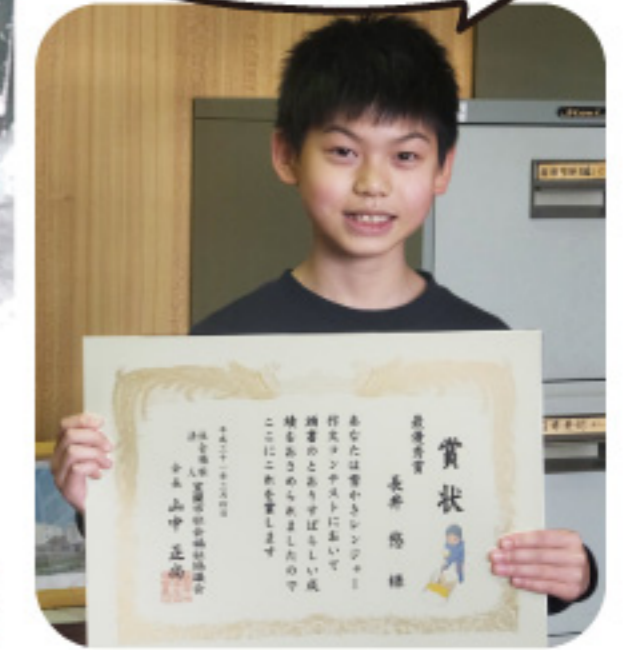 賞状
最優秀賞
長井 悠 様
あなたは雪かきレンジャー
作文コンテストにおいて
頭書のとおりすばらしい成
績をおさめられましたので
ここにこれを賞します
平成二十一年二月四日
社会福祉法人 室蘭市社会福祉協議会
会長 山中 正尚